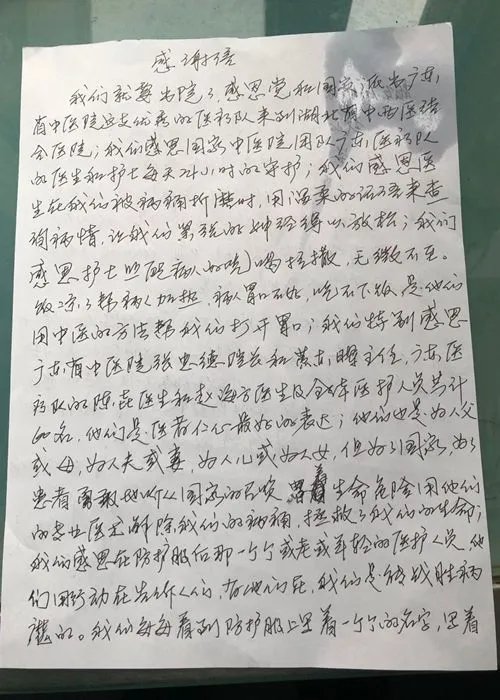 感谢语
我们就要出院了，感恩党和国家派出广东
省中医院这支优秀的医疗队来到湖北省中西医结
合医院；我们感恩国家中医院团队广东医疗队
的医生和护士每天24小时的守护；我们感恩医
生在我们被病痛折磨时，用温柔的话语来查
询病情，让我们紧张的神经得以放松；我们
感恩护士照顾病人的吃喝拉撒，无微不至。
饭凉了帮病人加热，病人胃口不好，吃不下饭，是他们
用中医的方法帮我们打开胃口；我们特别感恩
广东省中医院张忠德院长和萧东瞳主任，广东医
疗队的陈 医生和赵海方医生及全体医护人员共计
60名，他们是医者仁心最好的表达；他们也是为人父
或母，为人夫或妻，为人儿或为人女，但为了国家，为了
患者勇敢地听从国家的召唤 冒着生命危险用他们
的专业医术解除我们的病痛，拯救了我们的生命；
我们感恩在防护服后那一个个或老或年轻的医护人员，他
们用行动在告诉人们，有他们在，我们是能战胜病
魔的。我们每每看到防护服上写着一个个的名字，写着